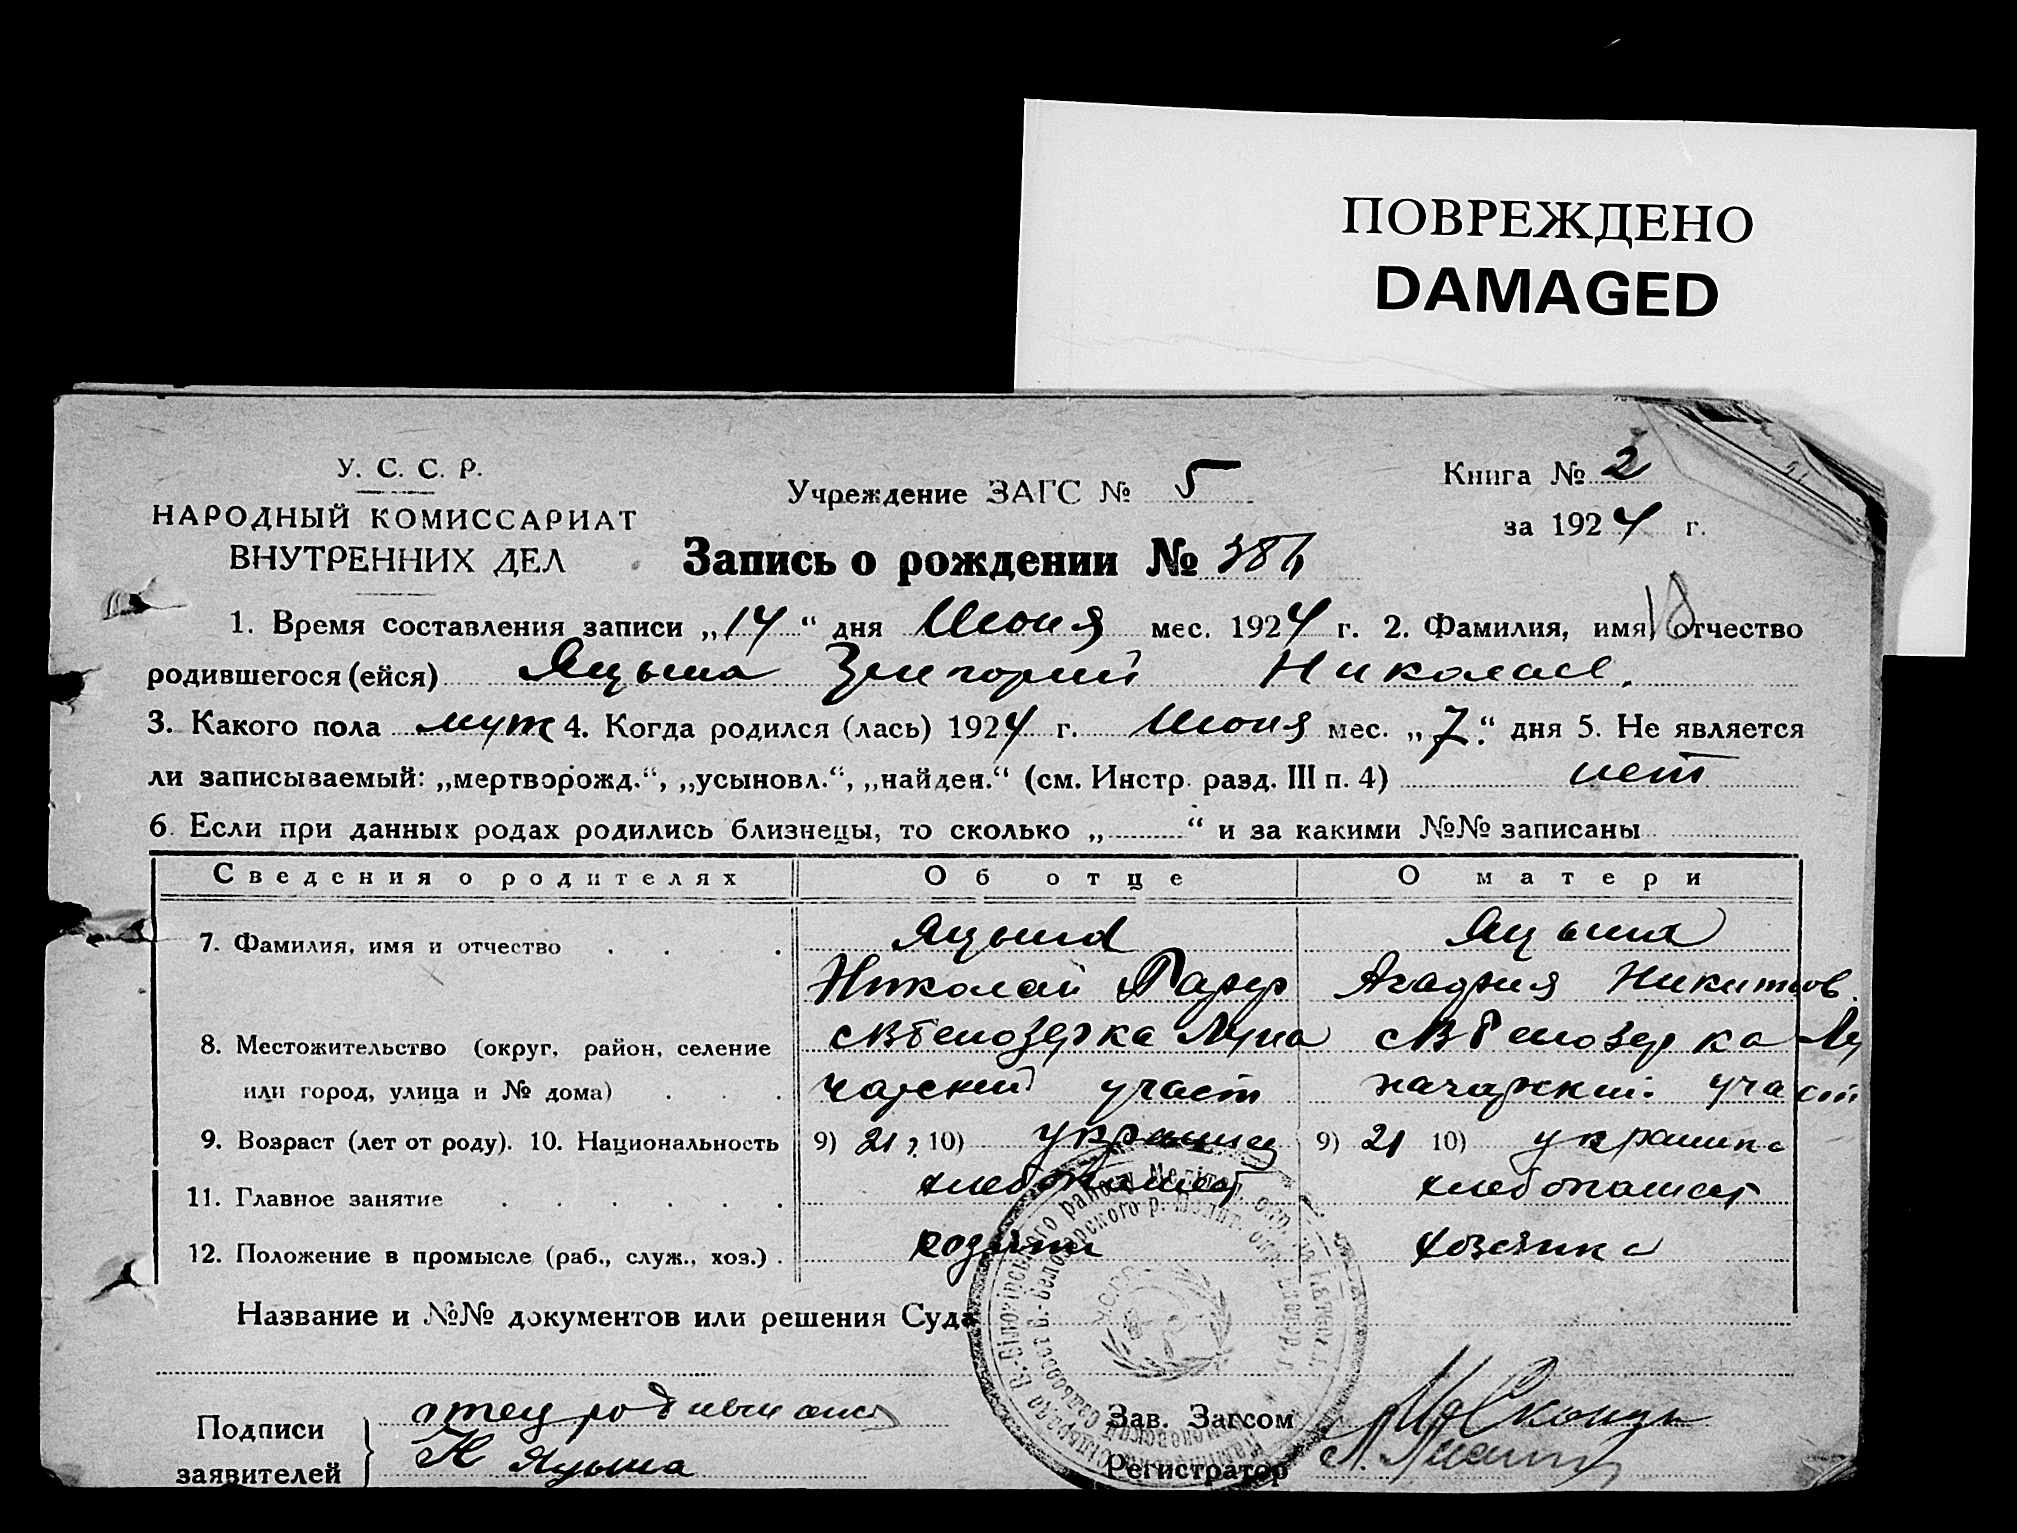 ПОВРЕЖДЕНО
DAMAGED
У. С. С. Р.
НАРОДНЫЙ КОМИССАРИАТ
ВНУТРЕННИХ ДЕЛ
Учреждение ЗАГС № 5
Книга № 2
за 1924 г.
Запись о рождении №
18
1. Время составления записи „14“ дня Июня мес. 1924 г. 2. Фамилия, имя, отчество
родившегося (ейся) Яцына Григорий Николаев.
3. Какого пола муж 4. Когда родился (лась) 1924 г. Июня мес. „7.“ дня 5. Не является
ли записываемый: „мертворожд.“, „усыновл.“, „найден.“ (см. Инстр. разд. III п. 4) нет
6. Если при данных родах родились близнецы, то сколько „ “ и за какими №№ записаны
Сведения о родителях Об отце О матери
7. Фамилия, имя и отчество Яцына Яцына
Николай Агафия Никитов.
8. Местожительство (округ, район, селение
или город, улица и № дома)
с В Белозерка Луна с В Белозерка Лу
чарский участ начарский участ
9. Возраст (лет от роду). 10. Национальность 9) 21, 10) украинец 9) 21 10) украинка
11. Главное занятие хлебопашест хлебопашест
12. Положение в промысле (раб., служ., хоз.) хозяин хозяйка
Название и №№ документов или решения Суда
Подписи
заявителей
отец
Н Яцына
Зав. Загсом
Регистратор